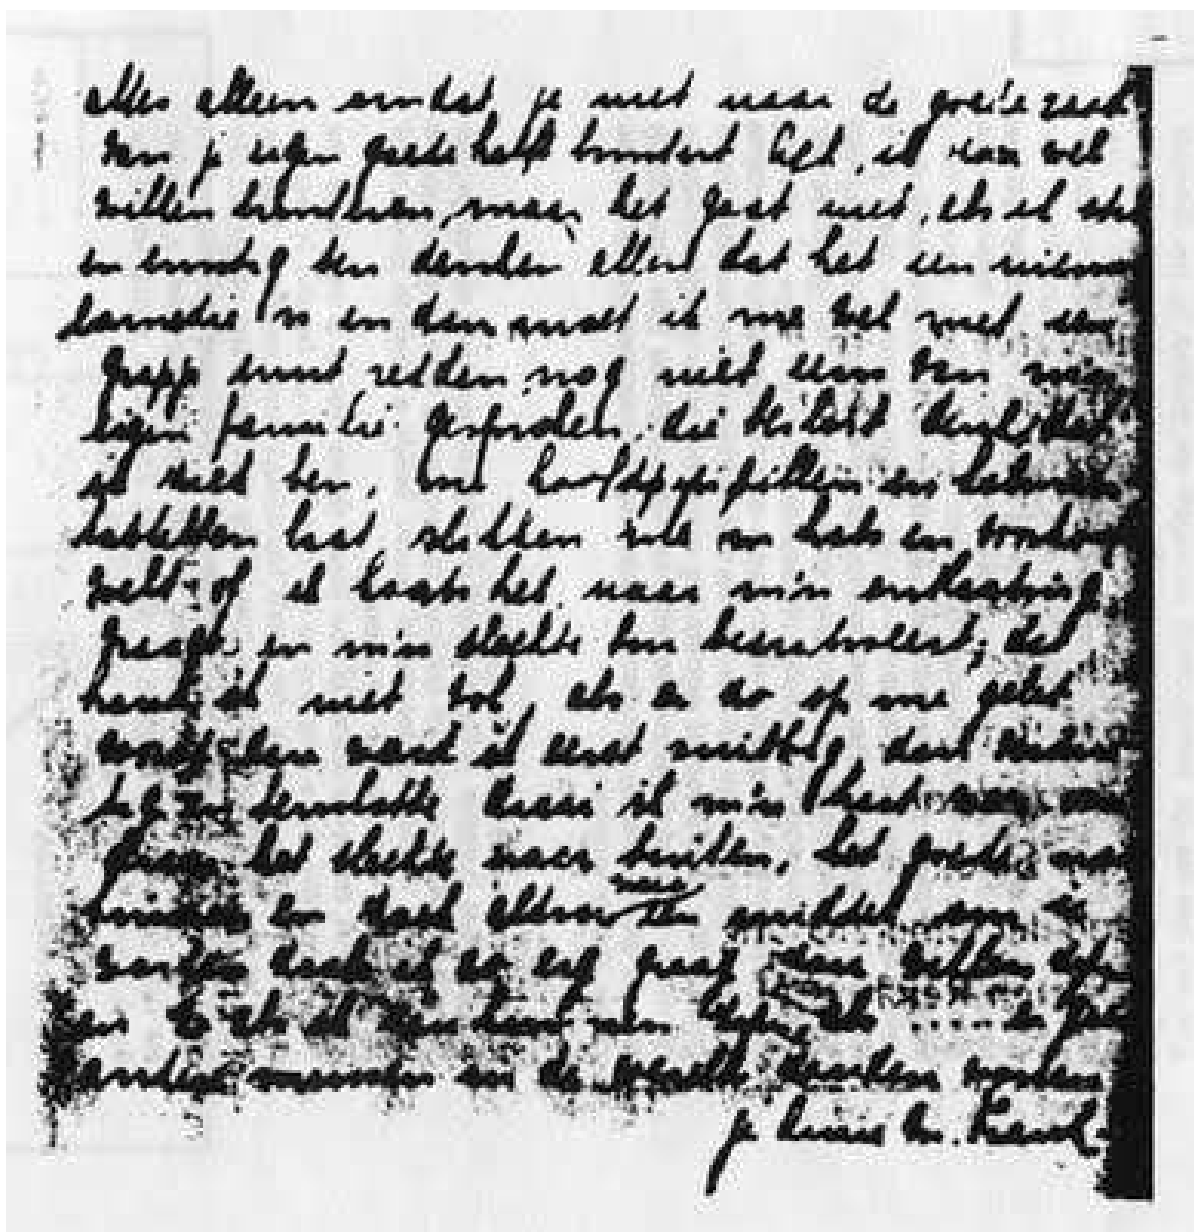 alles alleen omdat je niet naar de goede raad
van je eigen goede helft luistert. Och, ik zou wel
willen luisteren, maar het gaat niet, als ik stil
en ernstig ben denken allen dat het een nieuwe
comedie is en dan moet ik me wel met een
grapje eruit redden, nog niet eens van mijn
eigen familie gesproken, die beslist denkt dat
ik ziek ben, me hoofdpijnpillen en
tabletten laat slikken, me in hals en voorhoofd
voelt of ik koorts heb, naar mijn ontlasting
vraagt en mijn slechte bui becritiseert, dat
houd ik niet vol, als er zo op me gelet
wordt, dan word ik eerst snibbig, dan
en tenslotte draai ik mijn hart weer om,
draai het slechte naar buiten, het goede naar
binnen en zoek aldoor naar een middel om te
worden zoals ik zo erg graag zou willen zijn
en zoals ik zou kunnen zijn, als .... er geen
andere mensen in de wereld zouden wonen.
je Anne M. Frank.